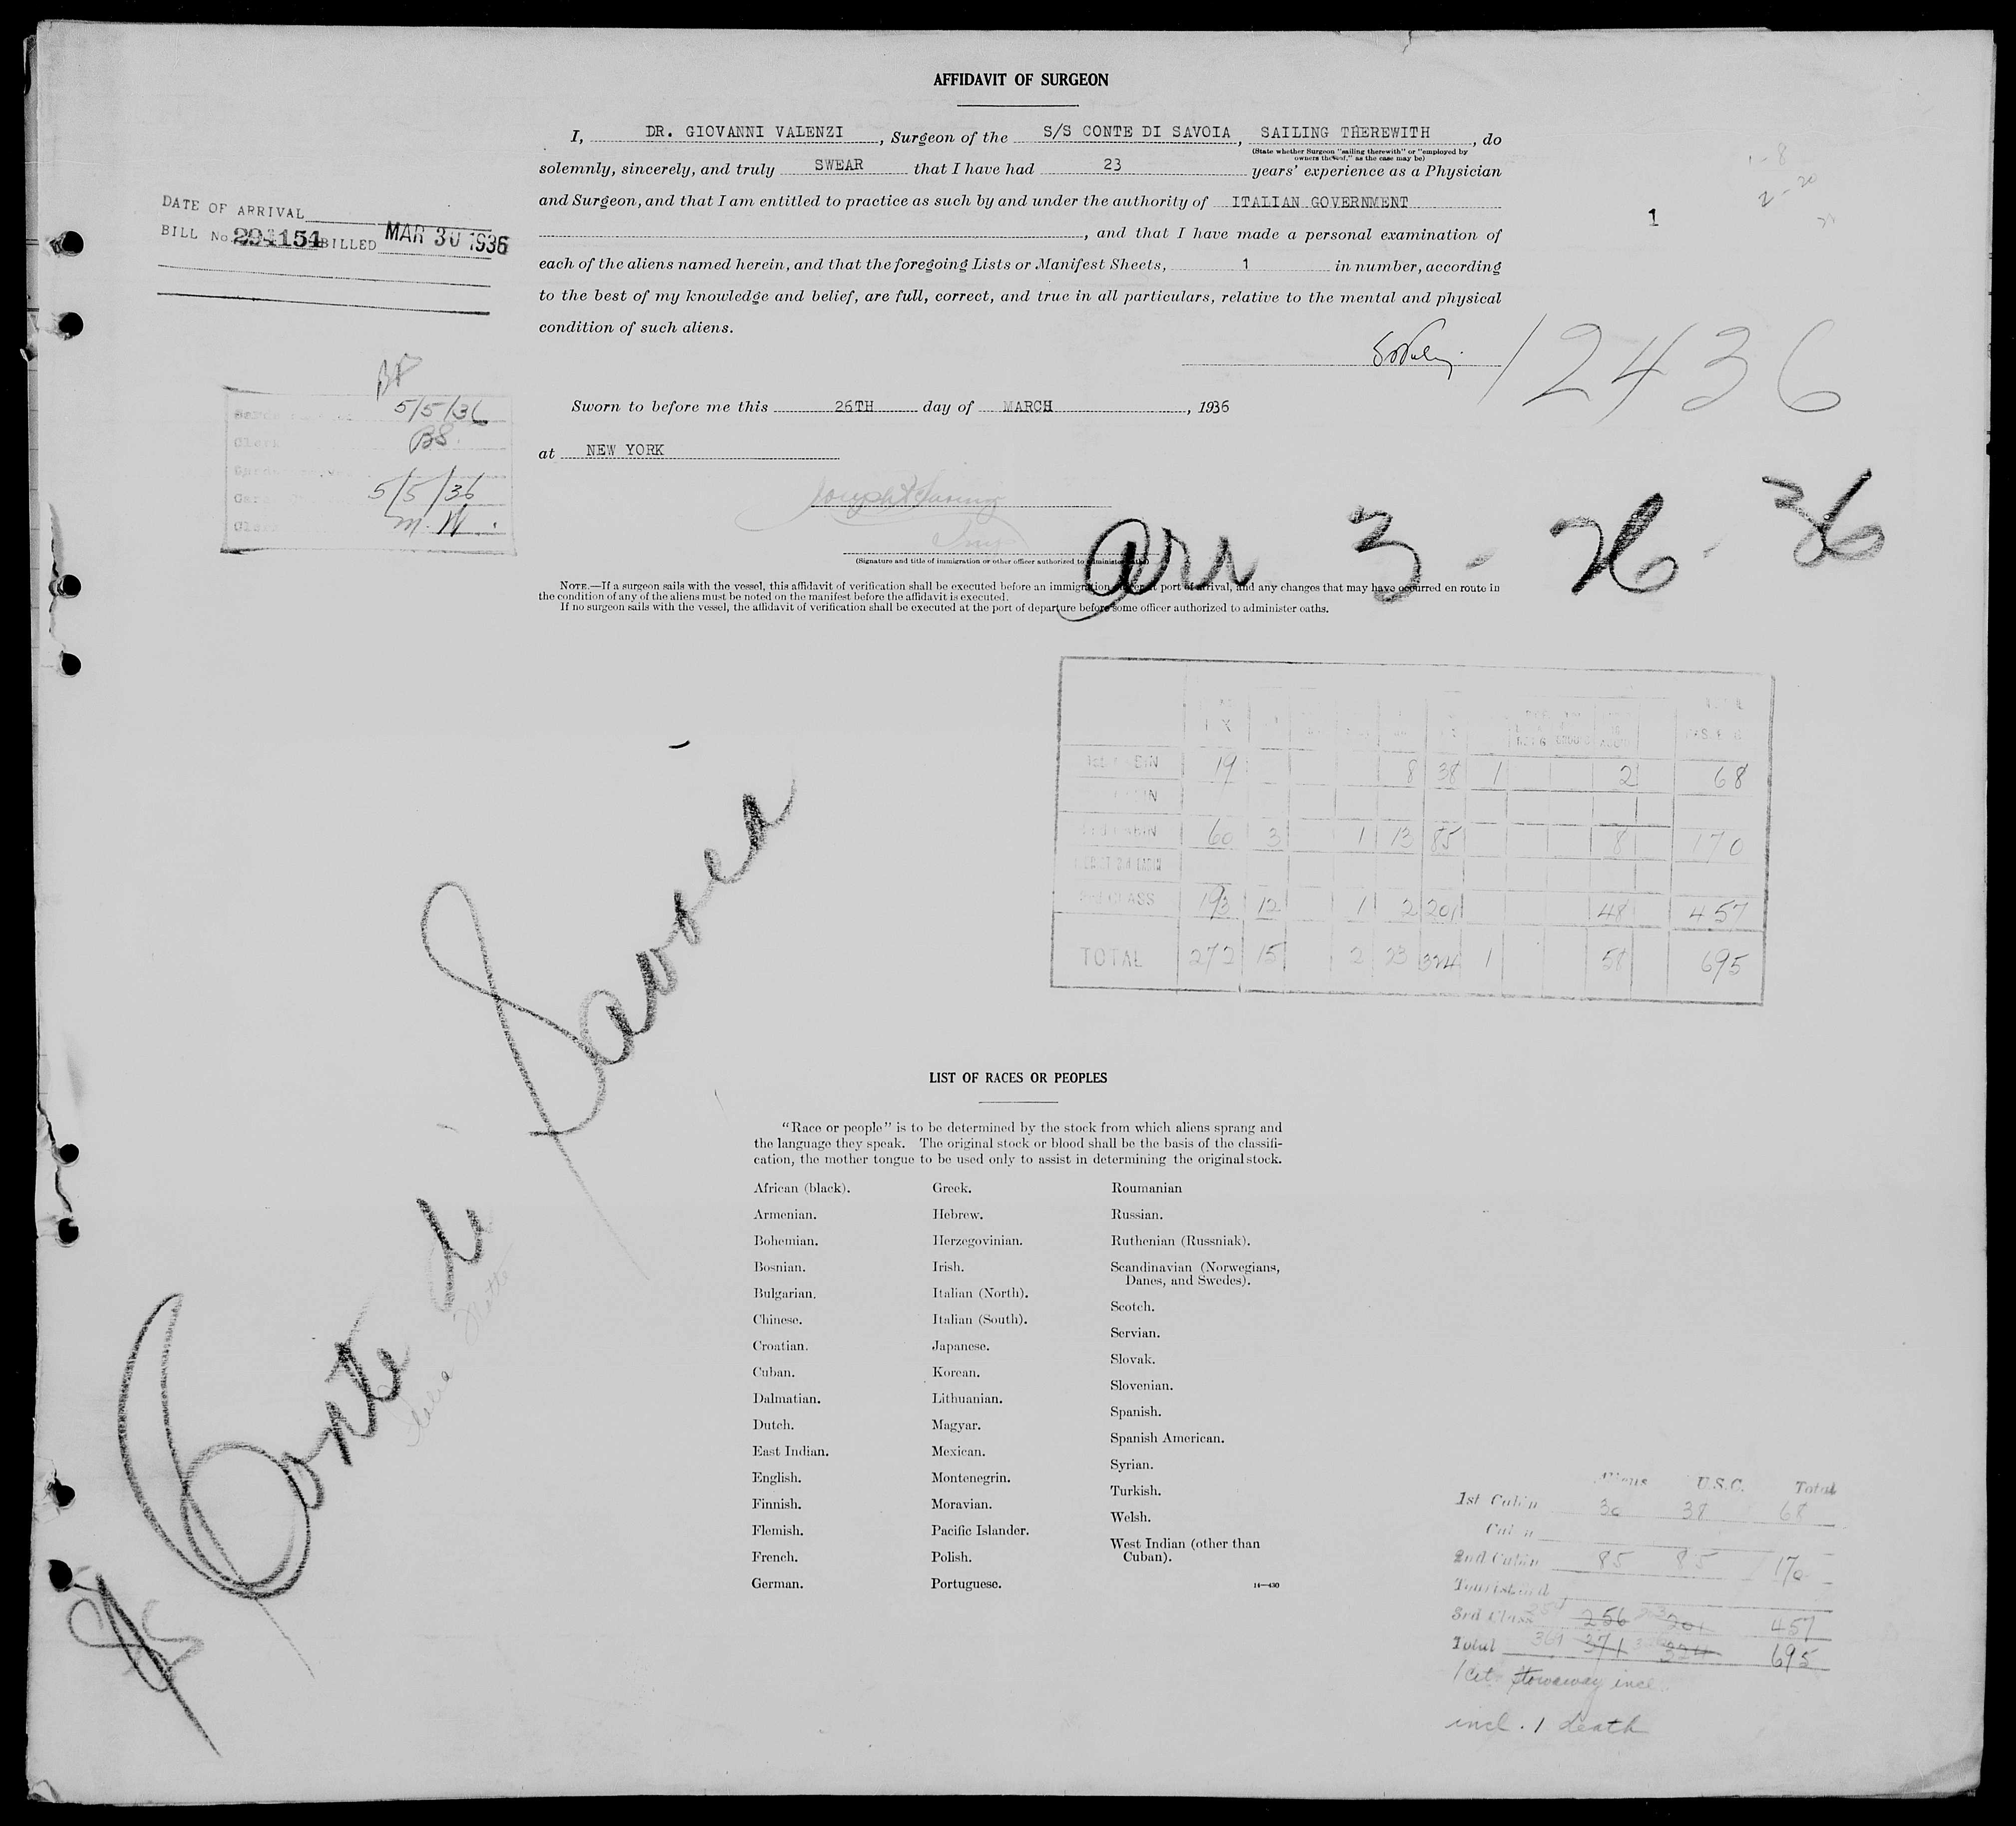 AFFIDAVIT OF SURGEON
I, DR. GIOVANNI VALENZI, Surgeon of the S/S CONTE DI SAVOIA, SAILING THEREWITH, do
(State whether Surgeon "sailing therewith" or "employed by owners thereof," as the case may be)
solemnly, sincerely, and truly SWEAR that I have had 23 years' experience as a Physician
and Surgeon, and that I am entitled to practice as such by and under the authority of ITALIAN GOVERNMENT
, and that I have made a personal examination of
each of the aliens named herein, and that the foregoing Lists or Manifest Sheets, 1 in number, according
to the best of my knowledge and belief, are full, correct, and true in all particulars, relative to the mental and physical
condition of such aliens.
1-8
2-20
1
DATE OF ARRIVAL
BILL No. 294154 BILLED MAR 30 1936
12436
Sworn to before me this 26TH day of MARCH, 1936
at NEW YORK
5/5/36
BS.
Clerk
5/5/36
M.W.
(Signature and title of immigration or other officer authorized to administer oaths)
arr 3-26-36
NOTE.—If a surgeon sails with the vessel, this affidavit of verification shall be executed before an immigration officer at port of arrival, and any changes that may have occurred en route in
the condition of any of the aliens must be noted on the manifest before the affidavit is executed.
If no surgeon sails with the vessel, the affidavit of verification shall be executed at the port of departure before some officer authorized to administer oaths.
1st CABIN 19 8 38 1 2 68
CABIN
2nd CABIN 60 3 1 13 85 8 170
3rd CLASS 193 12 1 2 201 48 457
TOTAL 272 15 2 23 324 1 58 695
Conte di Savoia
LIST OF RACES OR PEOPLES
"Race or people" is to be determined by the stock from which aliens sprang and
the language they speak. The original stock or blood shall be the basis of the classifi-
cation, the mother tongue to be used only to assist in determining the original stock.
African (black).
Armenian.
Bohemian.
Bosnian.
Bulgarian.
Chinese.
Croatian.
Cuban.
Dalmatian.
Dutch.
East Indian.
English.
Finnish.
Flemish.
French.
German.
Greek.
Hebrew.
Herzegovinian.
Irish.
Italian (North).
Italian (South).
Japanese.
Korean.
Lithuanian.
Magyar.
Mexican.
Montenegrin.
Moravian.
Pacific Islander.
Polish.
Portuguese.
Roumanian
Russian.
Ruthenian (Russniak).
Scandinavian (Norwegians,
Danes, and Swedes).
Scotch.
Servian.
Slovak.
Slovenian.
Spanish.
Spanish American.
Syrian.
Turkish.
Welsh.
West Indian (other than
Cuban).
14—430
Aliens U.S.C. Total
1st Cabin 30 38 68
Cabin
2nd Cabin 85 85 170
3rd Class 256 201 457
Total 371 324 695
stowaway incl
incl. 1 death